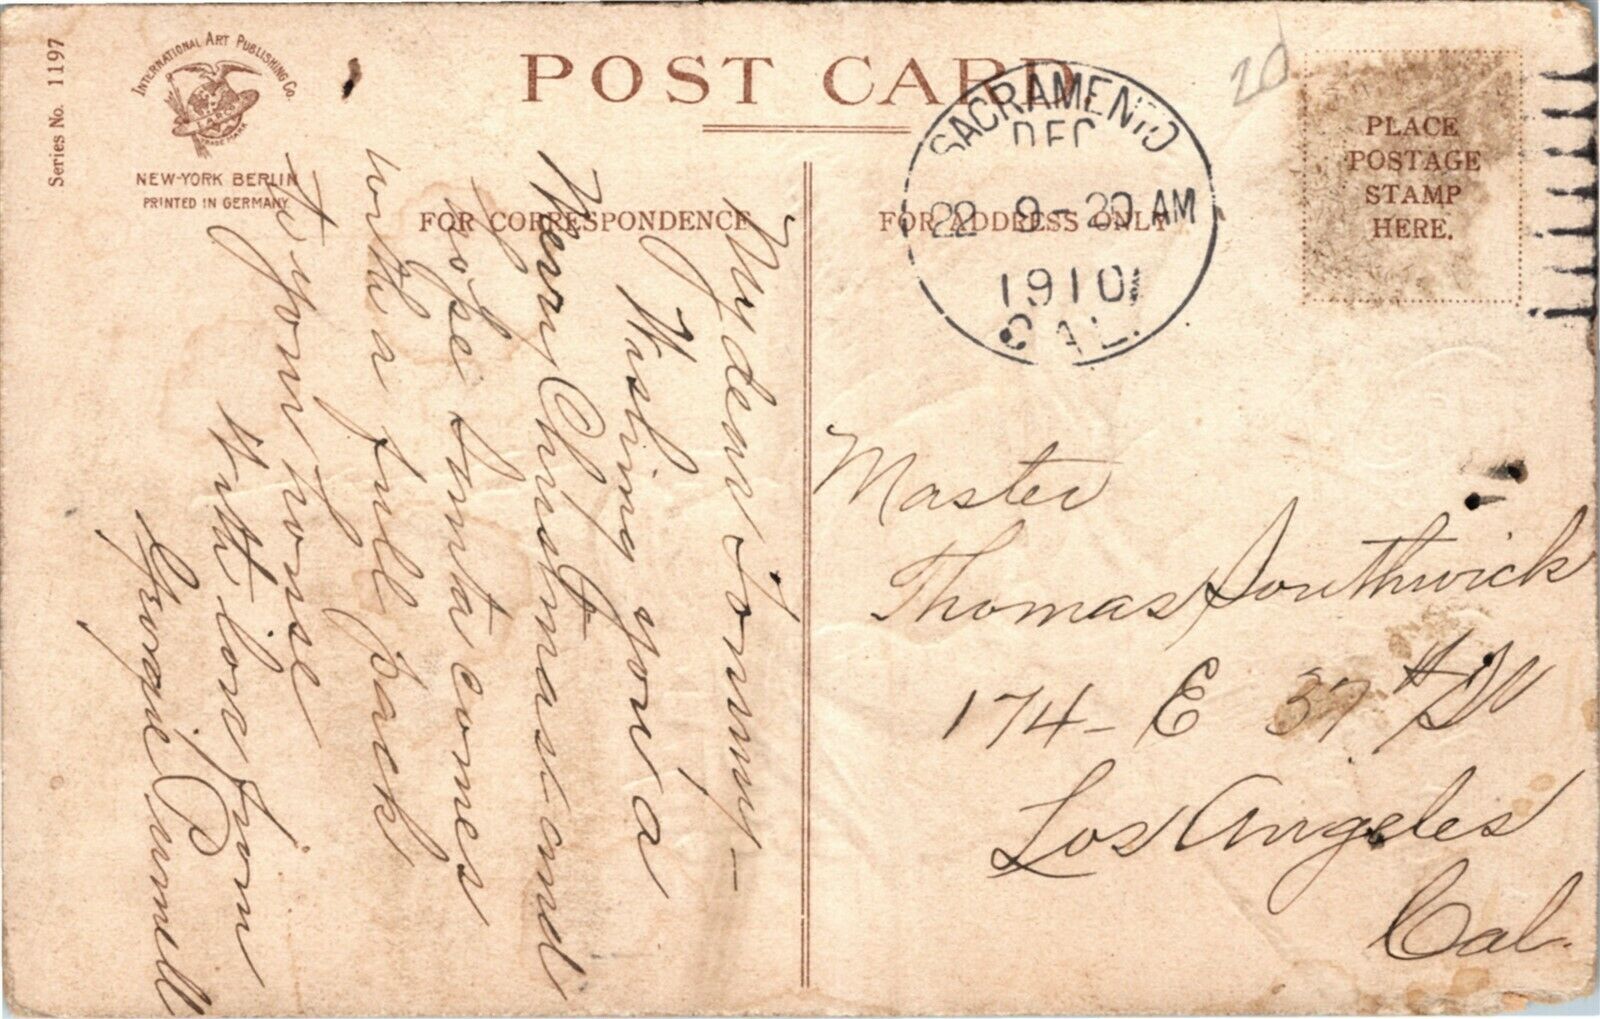 Series No. 1197
INTERNATIONAL ART PUBLISHING CO.
TRADE MARK
NEW-YORK BERLIN
PRINTED IN GERMANY
POST CARD
FOR CORRESPONDENCE
FOR ADDRESS ONLY
SACRAMENTO
DEC
22 9-20 AM
1910
CAL.
20
PLACE
POSTAGE
STAMP
HERE.
My dear Tommy-
Wishing you a
Merry Christmas and
hope Santa comes
with a full pack
to your house
With love from
Master
Thomas Southwick
174- E 37
Los Angeles
Cal.